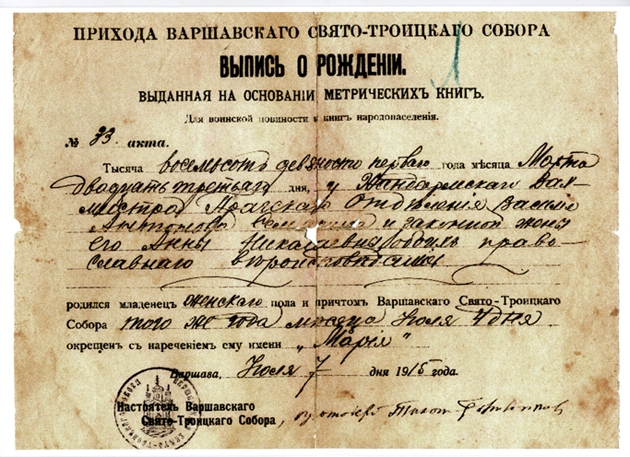 ПРИХОДА ВАРШАВСКАГО СВЯТО-ТРОИЦКАГО СОБОРА
ВЫПИСЬ О РОЖДЕНІИ.
ВЫДАННАЯ НА ОСНОВАНІИ МЕТРИЧЕСКИХЪ КНИГЪ.
Для воинской повиности и книгъ народонаселенія.
№ 33 акта.
Тысяча восемьсотъ девяносто перваго года мѣсяца Марта
двадцать третьяго дня, у Жандармскаго Вах-
мистра Отдѣленія Василія
Антонова и законной жены
его Анны Николаевны обоихъ право-
славнаго вѣроисповѣданія
родился младенецъ женскаго пола и причтомъ Варшавскаго Свято-Троицкаго
Собора того же года мѣсяца Іюля 4 дня
окрещенъ съ нареченіемъ ему имени „Марія"
Варшава, Іюля 7 дня 1915 года.
Настоятель Варшавскаго
Свято-Троицкаго Собора, протоіерей